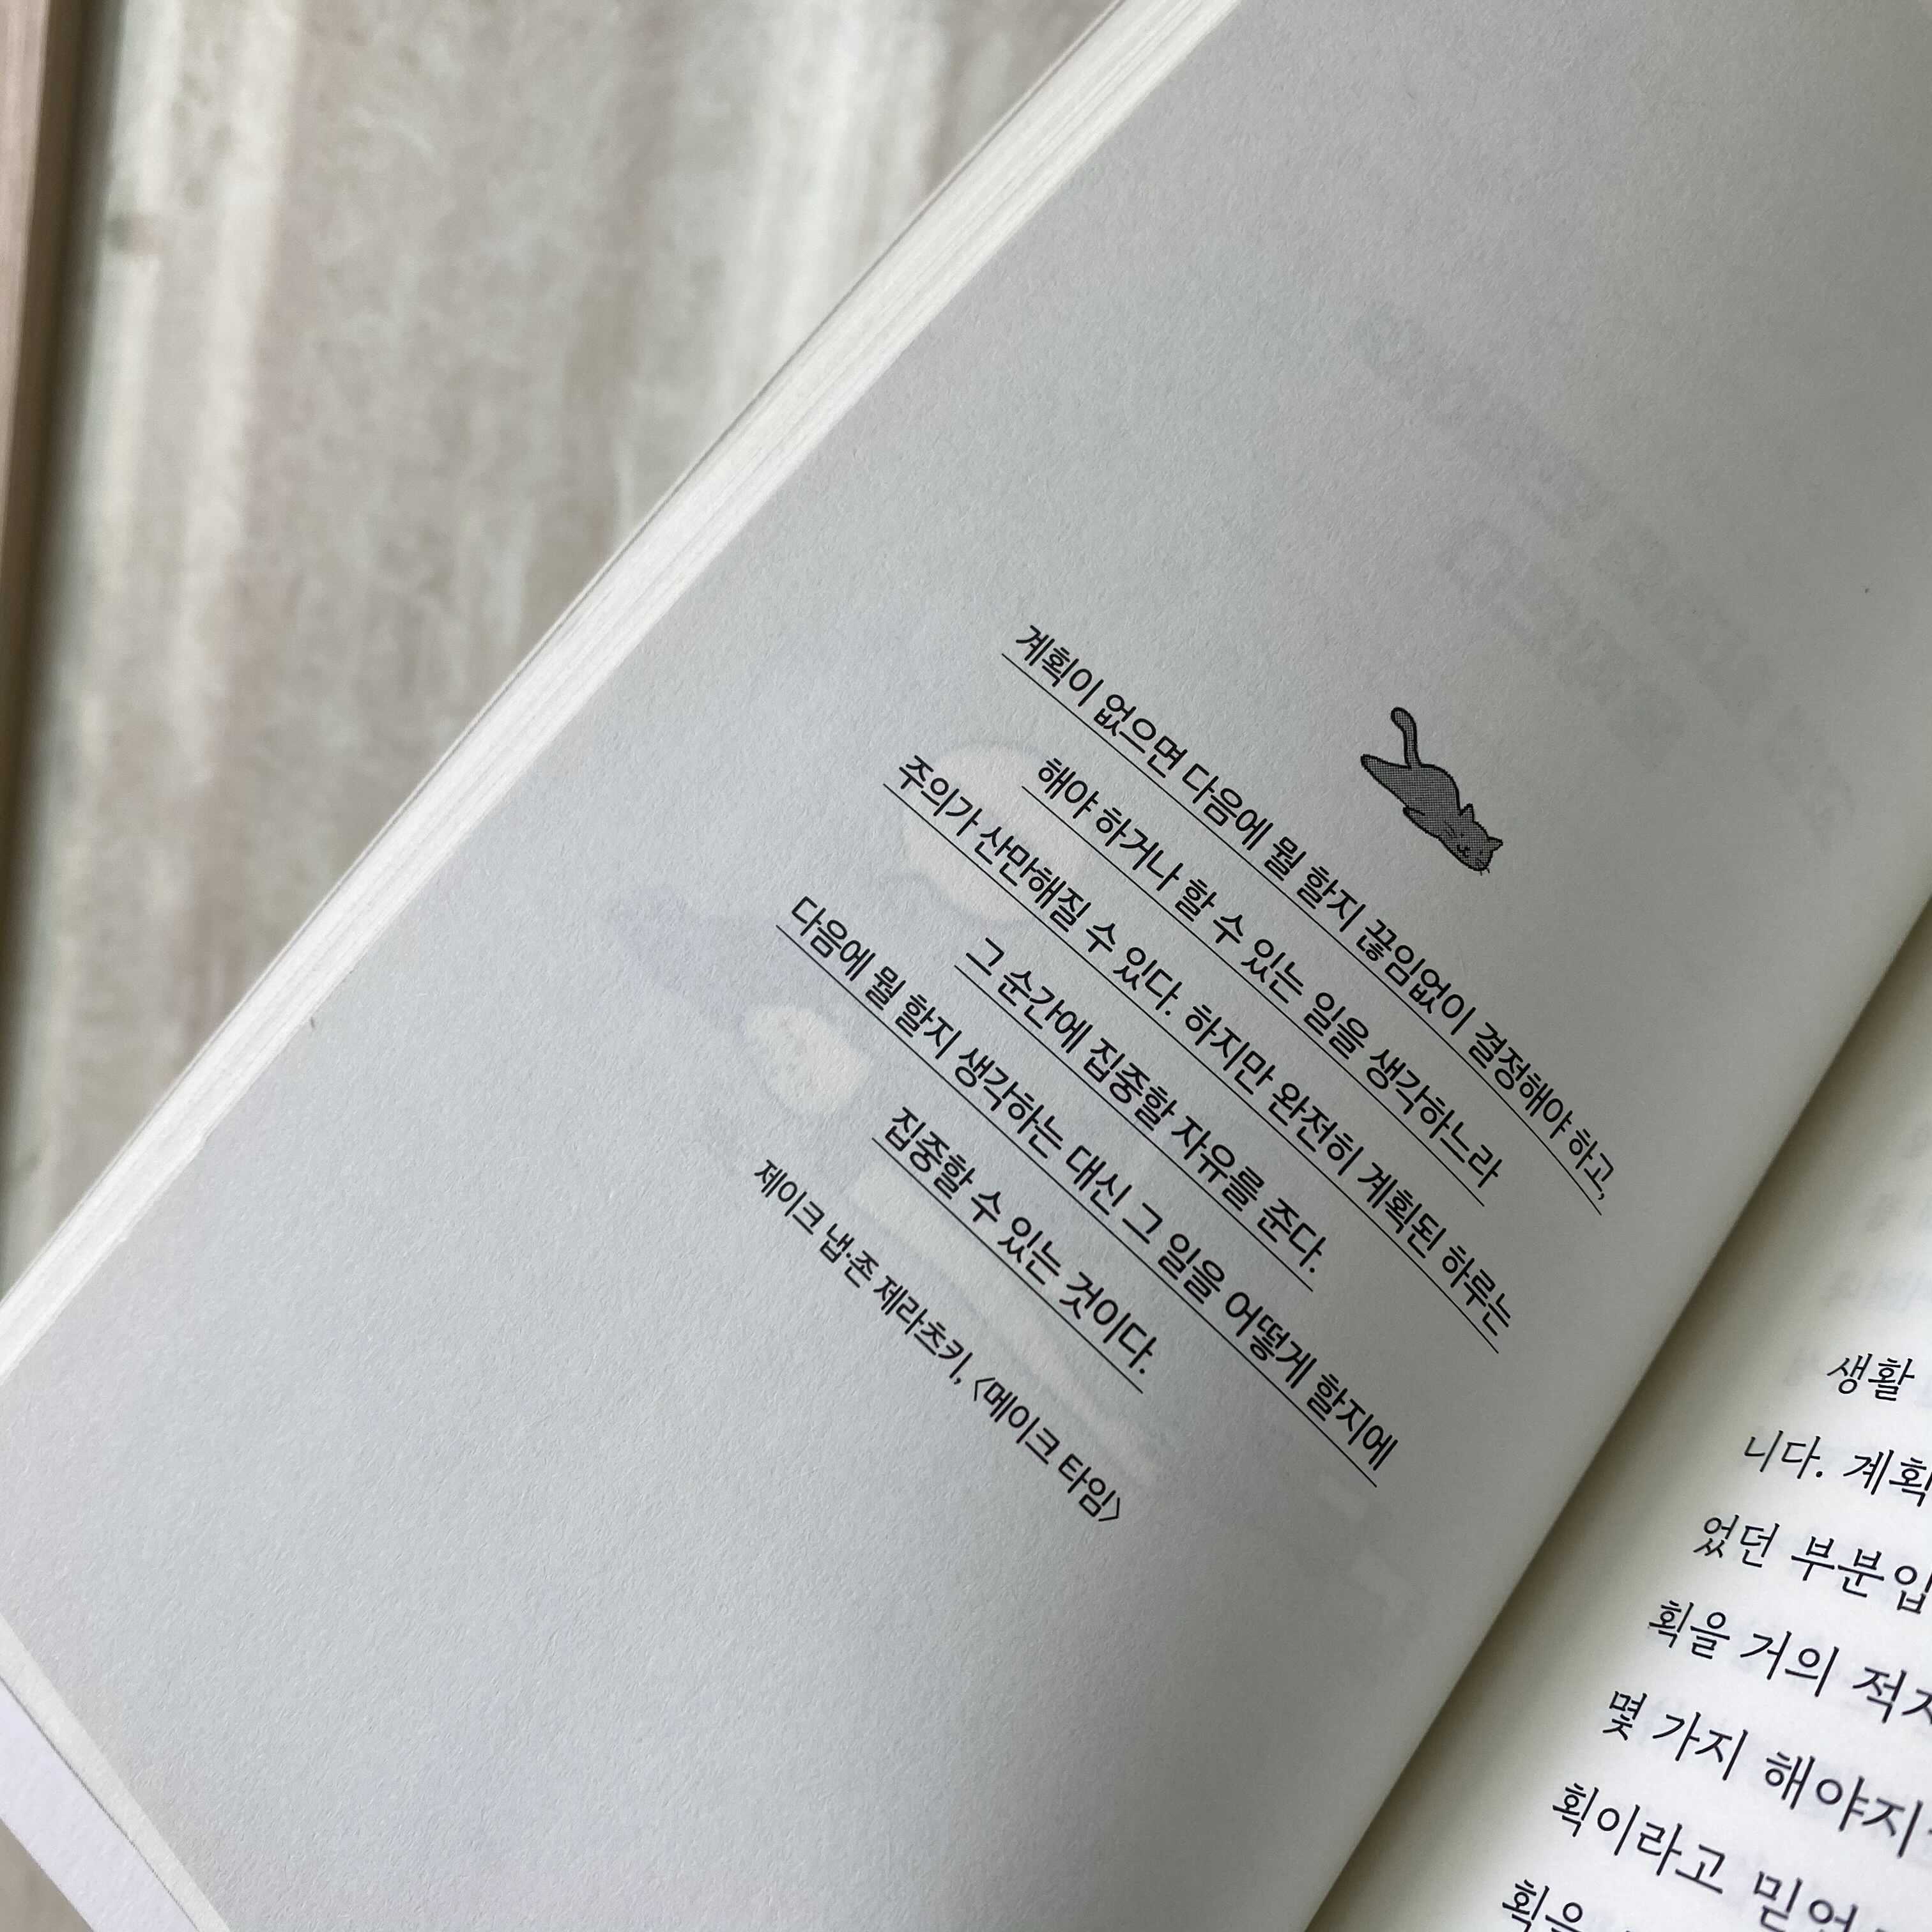 계획이 없으면 다음에 뭘 할지 끊임없이 결정해야 하고,
해야 하거나 할 수 있는 일을 생각하느라
주의가 산만해질 수 있다. 하지만 완전히 계획된 하루는
그 순간에 집중할 자유를 준다.
다음에 뭘 할지 생각하는 대신 그 일을 어떻게 할지에
집중할 수 있는 것이다.
제이크 냅·존 제라츠키, 〈메이크 타임〉
생활
니다. 계획
었던 부분입
획을 거의
몇 가지 해야지
획이라고
획은